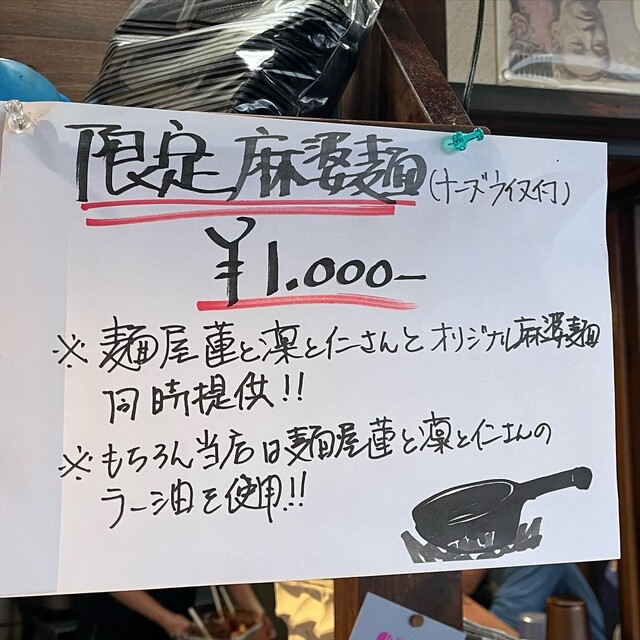 限定 麻婆麺 (チーズライス付)
¥1.000-
※ 麺屋 蓮と凜と仁さんと オリジナル麻婆麺
同時提供!!
※ もちろん当店は麺屋 蓮と凜と仁さんの
ラー油を使用!!